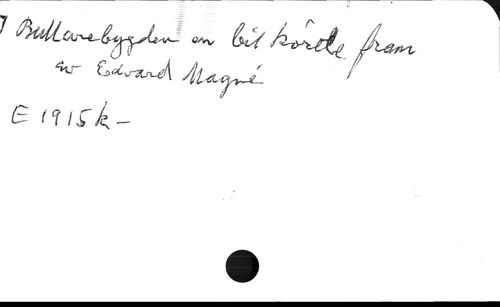 Bullarebygden en bit körde fram
av Edvard Magné
E 1915 k –